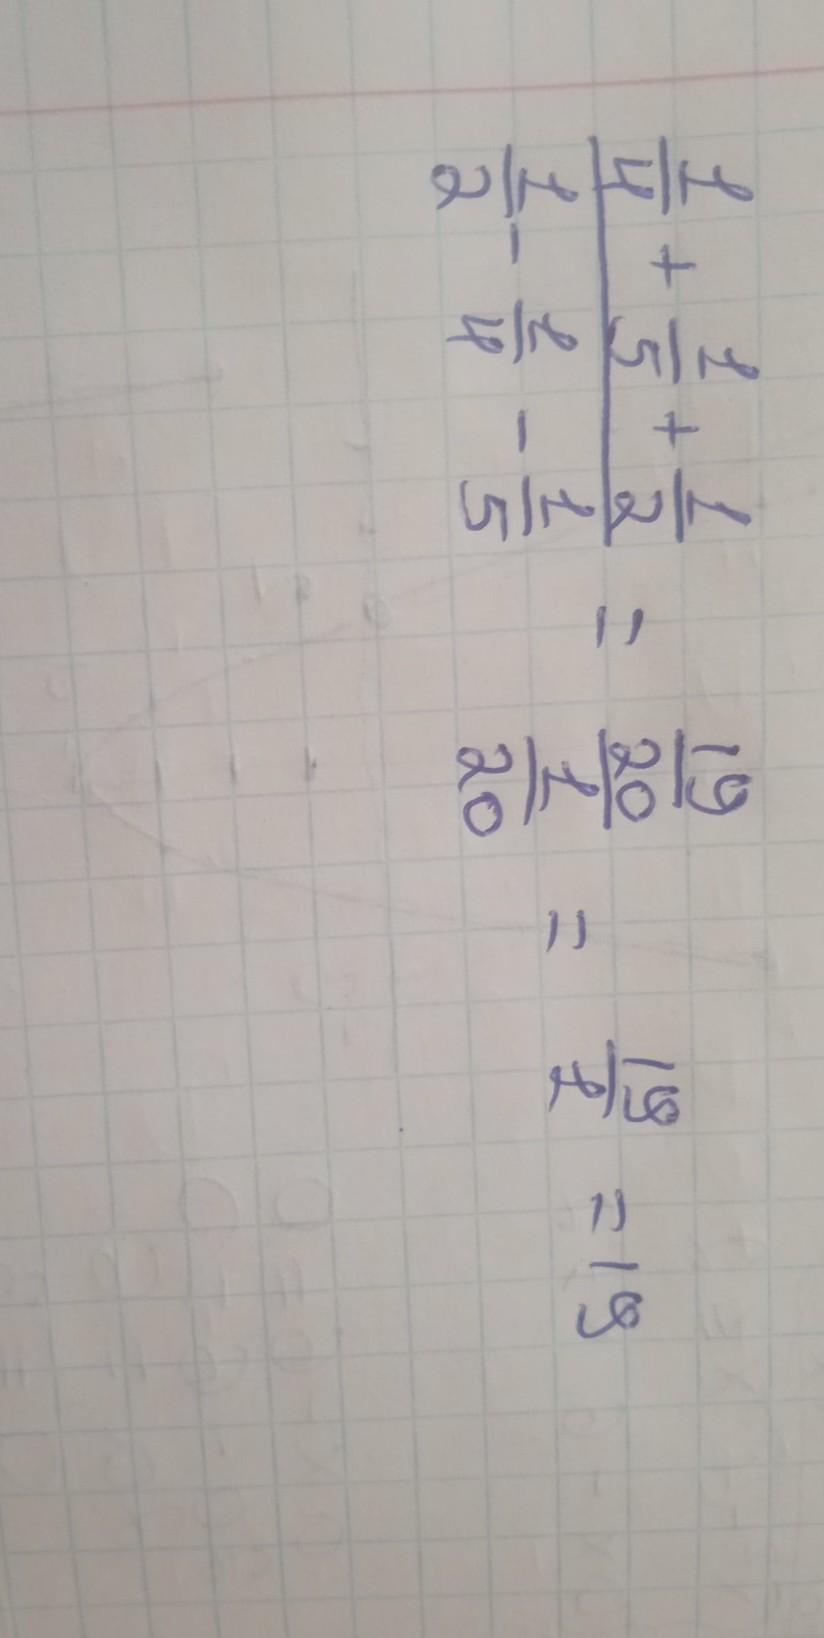 1/4 + 1/5 + 1/2
1/2 - 1/4 - 1/5 = 19/20 / 1/20 = 19/1 = 19